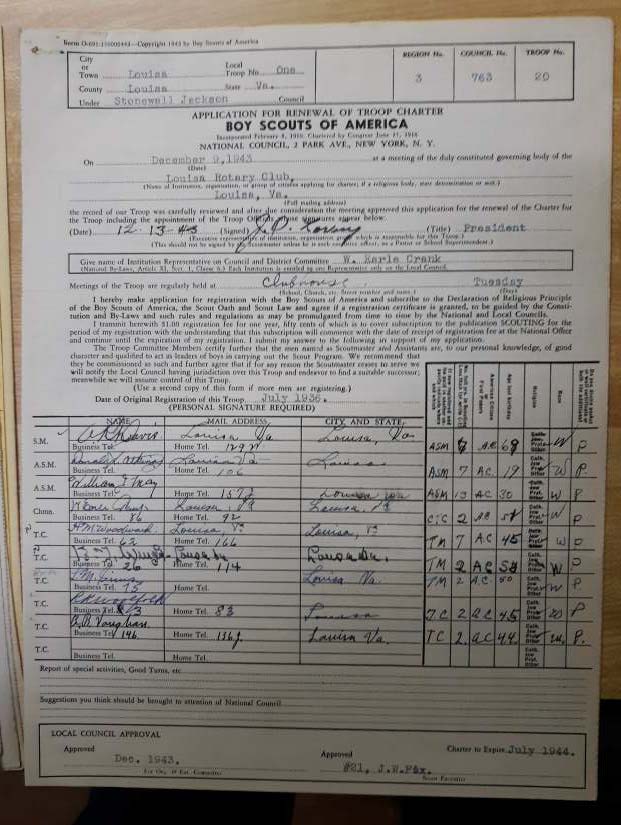 Copyright 1943 by Boy Scouts of America
City or Town Louisa Local Troop No. One
County Louisa State Va.
Under Stonewall Jackson Council
REGION No. 3
COUNCIL No. 763
TROOP No. 20
APPLICATION FOR RENEWAL OF TROOP CHARTER
BOY SCOUTS OF AMERICA
Incorporated February 8, 1910. Chartered by Congress June 15, 1916
NATIONAL COUNCIL, 2 PARK AVE., NEW YORK, N. Y.
On December 9, 1943 at a meeting of the duly constituted governing body of the
(Date)
Louisa Rotary Club,
(Name of Institution, organization, or group of citizens applying for charter; if a religious body, state denomination or sect.)
Louisa, Va.
(Full mailing address)
the record of our Troop was carefully reviewed and after due consideration the meeting approved this application for the renewal of the Charter for
the Troop including the appointment of the Troop Officials whose signatures appear below:
(Date) 12-13-43 (Signed) (Title) President
(Executive representative of institution, organization, group which is responsible for this Troop.)
(This should not be signed by Scoutmaster unless he is such executive officer, as a Pastor or School Superintendent.)
Give name of Institution Representative on Council and District Committee W. Earle Crank
(National By-Laws, Article XI, Sect. 1, Clause 6.) Each Institution is entitled to one Representative only on the Local Council.
Meetings of the Troop are regularly held at Clubhouse Tuesday
(School, Church, etc. Street number and name.) (Day)
I hereby make application for registration with the Boy Scouts of America and subscribe to the Declaration of Religious Principle
of the Boy Scouts of America, the Scout Oath and Scout Law and agree if a registration certificate is granted, to be guided by the Constitution
and By-Laws and such rules and regulations as may be promulgated from time to time by the National and Local Councils.
I transmit herewith $1.00 registration fee for one year, fifty cents of which is to cover subscription to the publication SCOUTING for the
period of my registration with the understanding that this subscription will commence with the date of receipt of registration fee at the National Office
and continue until the expiration of my registration. I submit my answer to the following in support of my application.
The Troop Committee Members certify further that the men named as Scoutmaster and Assistants are, to our personal knowledge, of good
character and qualified to act as leaders of boys in carrying out the Scout Program. We recommend that
they be commissioned as such and further agree that if for any reason the Scoutmaster ceases to serve we
will notify the Local Council having jurisdiction over this Troop and endeavor to find a suitable successor;
meanwhile we will assume control of this Troop.
(Use a second copy of this form if more men are registering.)
Date of Original Registration of this Troop. July 1936.
(PERSONAL SIGNATURE REQUIRED)
NAME MAIL ADDRESS CITY AND STATE
American Citizen or First Papers
Age last birthday
Religion
Race
S.M. Louisa Va Louisa, Va ASM A.C. W P
Business Tel. Home Tel.
A.S.M. Louisa Va Louisa ASM 7 A.C. 19 W P
Business Tel. Home Tel. 106
A.S.M. William ASM 13 AC 30 W P
Business Tel. Home Tel. Louisa Va
Chmn. Louisa, Va Louisa, Va 2 AC P
Business Tel. 86 Home Tel. 92
T.C. Woodward Louisa, Va Louisa, Va TM 7 AC 45 W P
Business Tel. 62 Home Tel. 166
T.C. Louisa Va. TM 2 AC W P
26 Home Tel. 114
T.C. Louisa Va. TM 2 A.C. 50 W P
Business Tel. 75 Home Tel.
T.C. Louisa T.C 2 AC 45 P
Business Tel. Home Tel. 83
T.C. Vaughan Louisa Va. TC 2 AC 44 W. P.
Business Tel. 146 Home Tel. 136J
T.C.
Business Tel. Home Tel.
Report of special activities, Good Turns, etc.
Suggestions you think should be brought to attention of National Council
LOCAL COUNCIL APPROVAL
Approved Dec. 1943. Approved #21, J.W.Fix. Charter to Expire July 1944.
Scout Executive